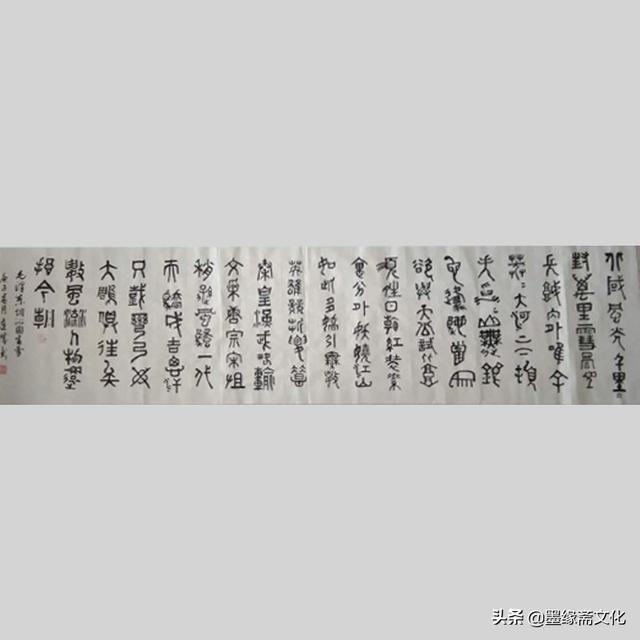 北國風光千里冰
封萬里雪飄望
長城內外唯余
莽〻大河上下頓
失滔〻山舞銀
蛇原馳蠟象
欲與天公試比高
須晴日看紅裝素
裹分外妖嬈江山
如此多嬌引無數
英雄競折腰惜
秦皇漢武略輸
文采唐宗宋祖
稍遜風騷一代
天驕成吉思汗
只識彎弓射
大雕俱往矣
數風流人物還
看今朝
毛澤東詞沁園春雪
头条 @墨缘斋文化